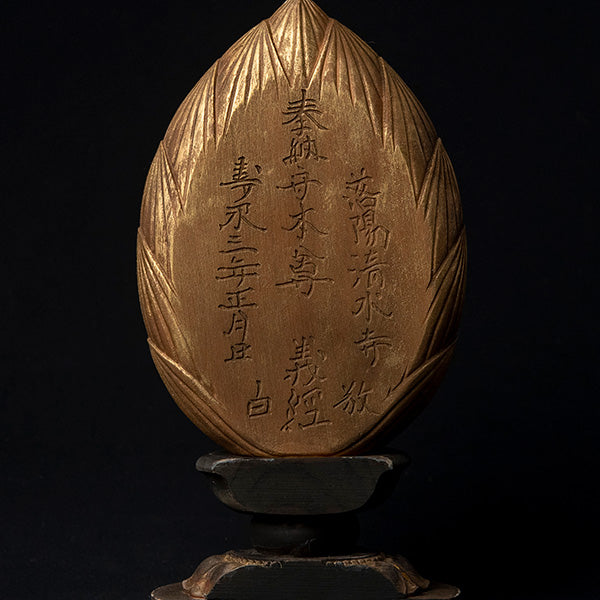 落陽清水寺 敬
奉納守本尊 義經
壽永三年正月日 白